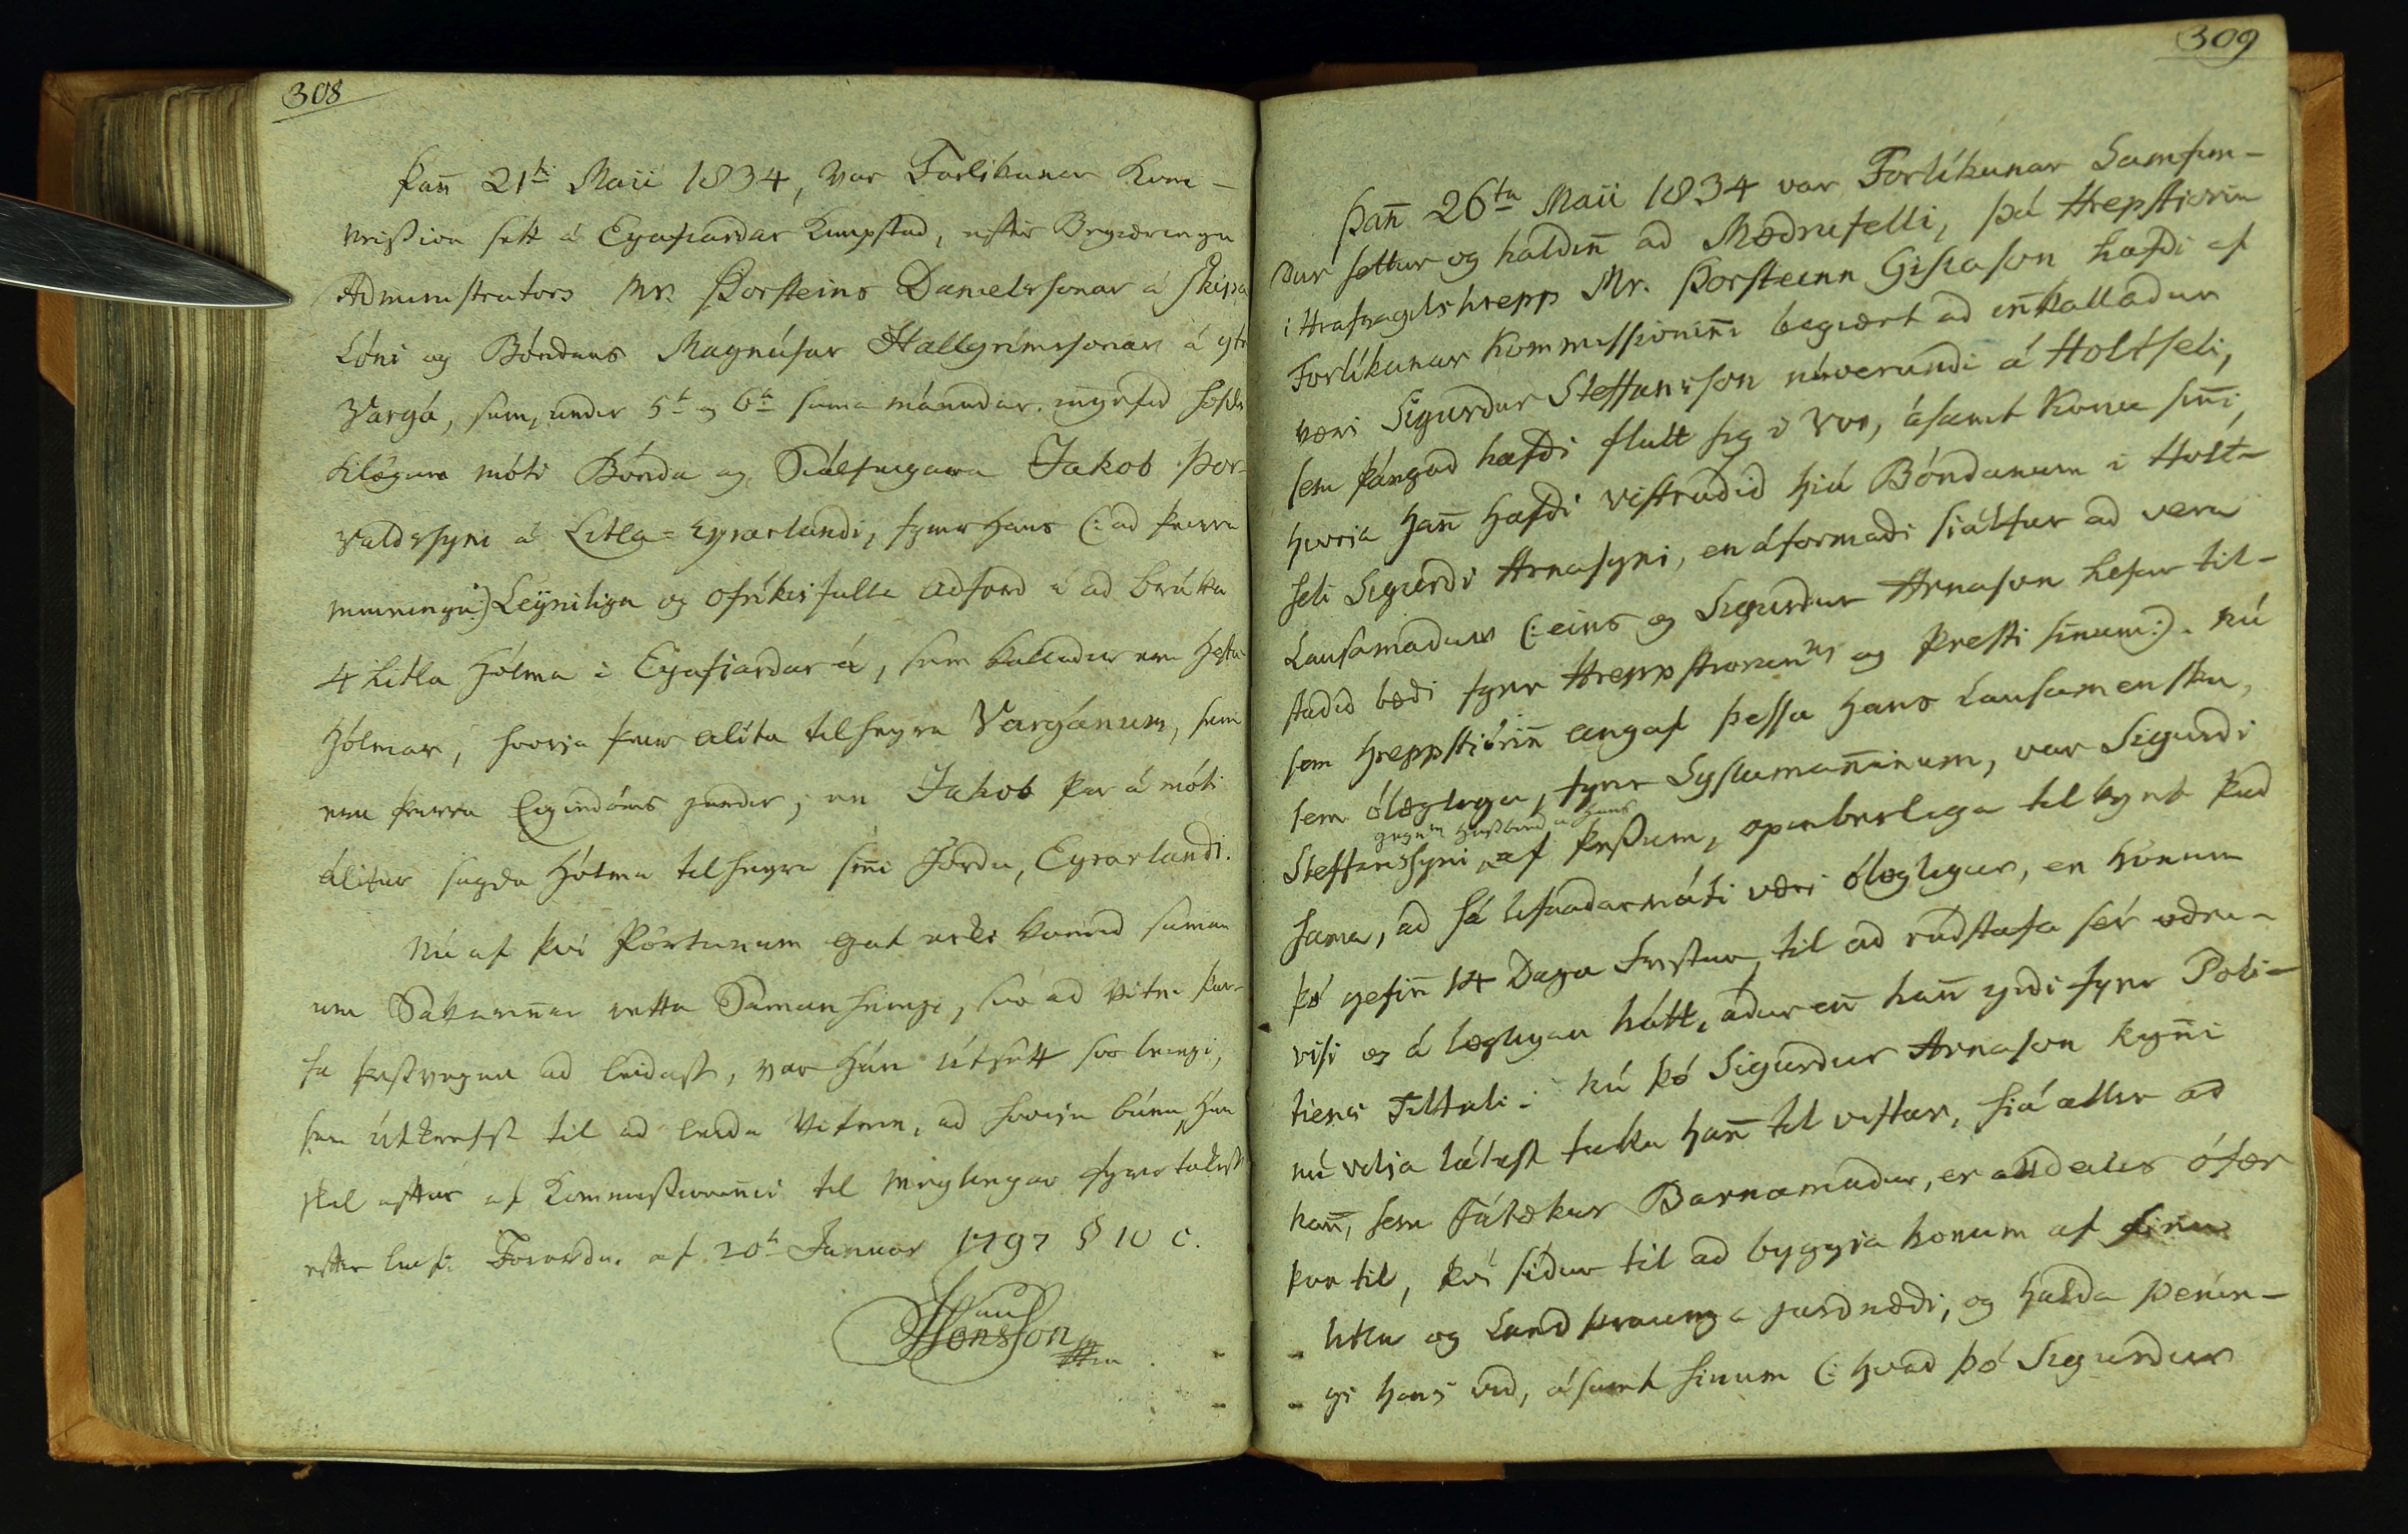 308
Þan̄ 21ti Maii 1834, var Forlikunar Kom-
mission sett á Eyafiardar Kaupstad, eftir Begiæringu
Administrators Mr. Þorsteins Danielssonar á Skipa
Lóni og Bóndans Magnúsar Hallgrímssonar á ytr
Vargá, sem, under 5t og 6t sama mánudar. inngefid hofdu
Klögun móti Bónda og Siálfseigara Jakob Þor-
valdssyni á Litla-Eyrarlandi, fyrir hans (: ad þeirra
meiningu :) Leyniliga og ofríkisfulla adferd i ad brúka
4 litla Hólma i Eyafiardar á, sem kalladir eru Hesta
Hólmar, hvoria þeir alíta tilheyra Vargánum, sem
eru þeirra Eigindóms jarder; en Jakob þar á móti
álitur sagda Hólma tilheyra sin̄i Jördu, Eyrarlandi.
Nú af því Pörtunum gat ecki komid saman
um Sakarin̄ar retta Samanheingi, svo ad Vitni þur-
fa þessvegna ad leidast, var hún útsett svo leingi,
sem útkrefst til ad leida Vitnin, ad hvoriu búnu, hún
skal aftur af Kommissionin̄i til Meglingar fyrirtakast
eftir Forordn. af 20t Januar 1797 § 10 c.
Jonsson
309
Þan̄ 26ta Maii 1834 var Forlíkunar Samfun-
dur settur og haldin̄ ad Mödrufelli, þá Hrepstiorin
i Hrafnagilshrepp Mr. Þorsteinn Gislason hafdi af
Forlíkunar Kommissionin̄i begiært ad in̄kalladur
væri Sigurdur Steffansson núverandi á Holtseli,
sem þángad hafdi flutt sig i Vor, ásamt Konu sin̄i,
hvoria han̄ hafdi vistradid hiá Bóndanum i Holt-
seli Sigurdi Arnasyni, en áformadi siálfur ad vera
Lausamadur (: eins og Sigurdur Arnason hefur til-
stadid bædi fyrir Hreppstioran̄s og Presti sinum :). Nú
sem Hreppstiórin̄ angaf þessa hans Lausamensku,
sem ólöglega, fyrir Syslumanninum, var Sigurdi
gegnum Husbond a hans
Steffanssyni, af þessum, opinberlega tilkynt þad
sama, ad sá lifnadarmáti væri ólöglegur, en hönum
þó gefin̄ 14 Daga Frestur, til ad rádstafa sér ödru-
visi og á löglegan hátt, adur en̄ han̄ yrdi fyrir Poli-
tiens Tiltali. Nú þó Sigurdur Arnason kyn̄i
nú vilja látast taka han̄ til vistar, siá aller ad
han̄, sem Fátækur Barnamadur, er alldeiles ófær
þar til, þvi sidur til ad byggia honum af sinu
litlu og Landþraunga jardnædi, og halda Penin-
gi hans vid, ásamt sinum (: hvad þó Sigurdur